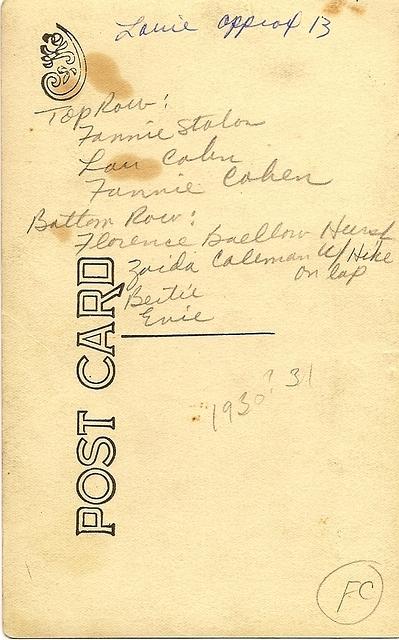 Louie approx 13
Top Row:
Fannie Stolon
Lou Cohen
Fannie Cohen
Bottom Row:
Florence Baellow Hurst
Zaida Coleman w/ Mike
on lap
Bertie
Evie
POST CARD
1930? 31
FC